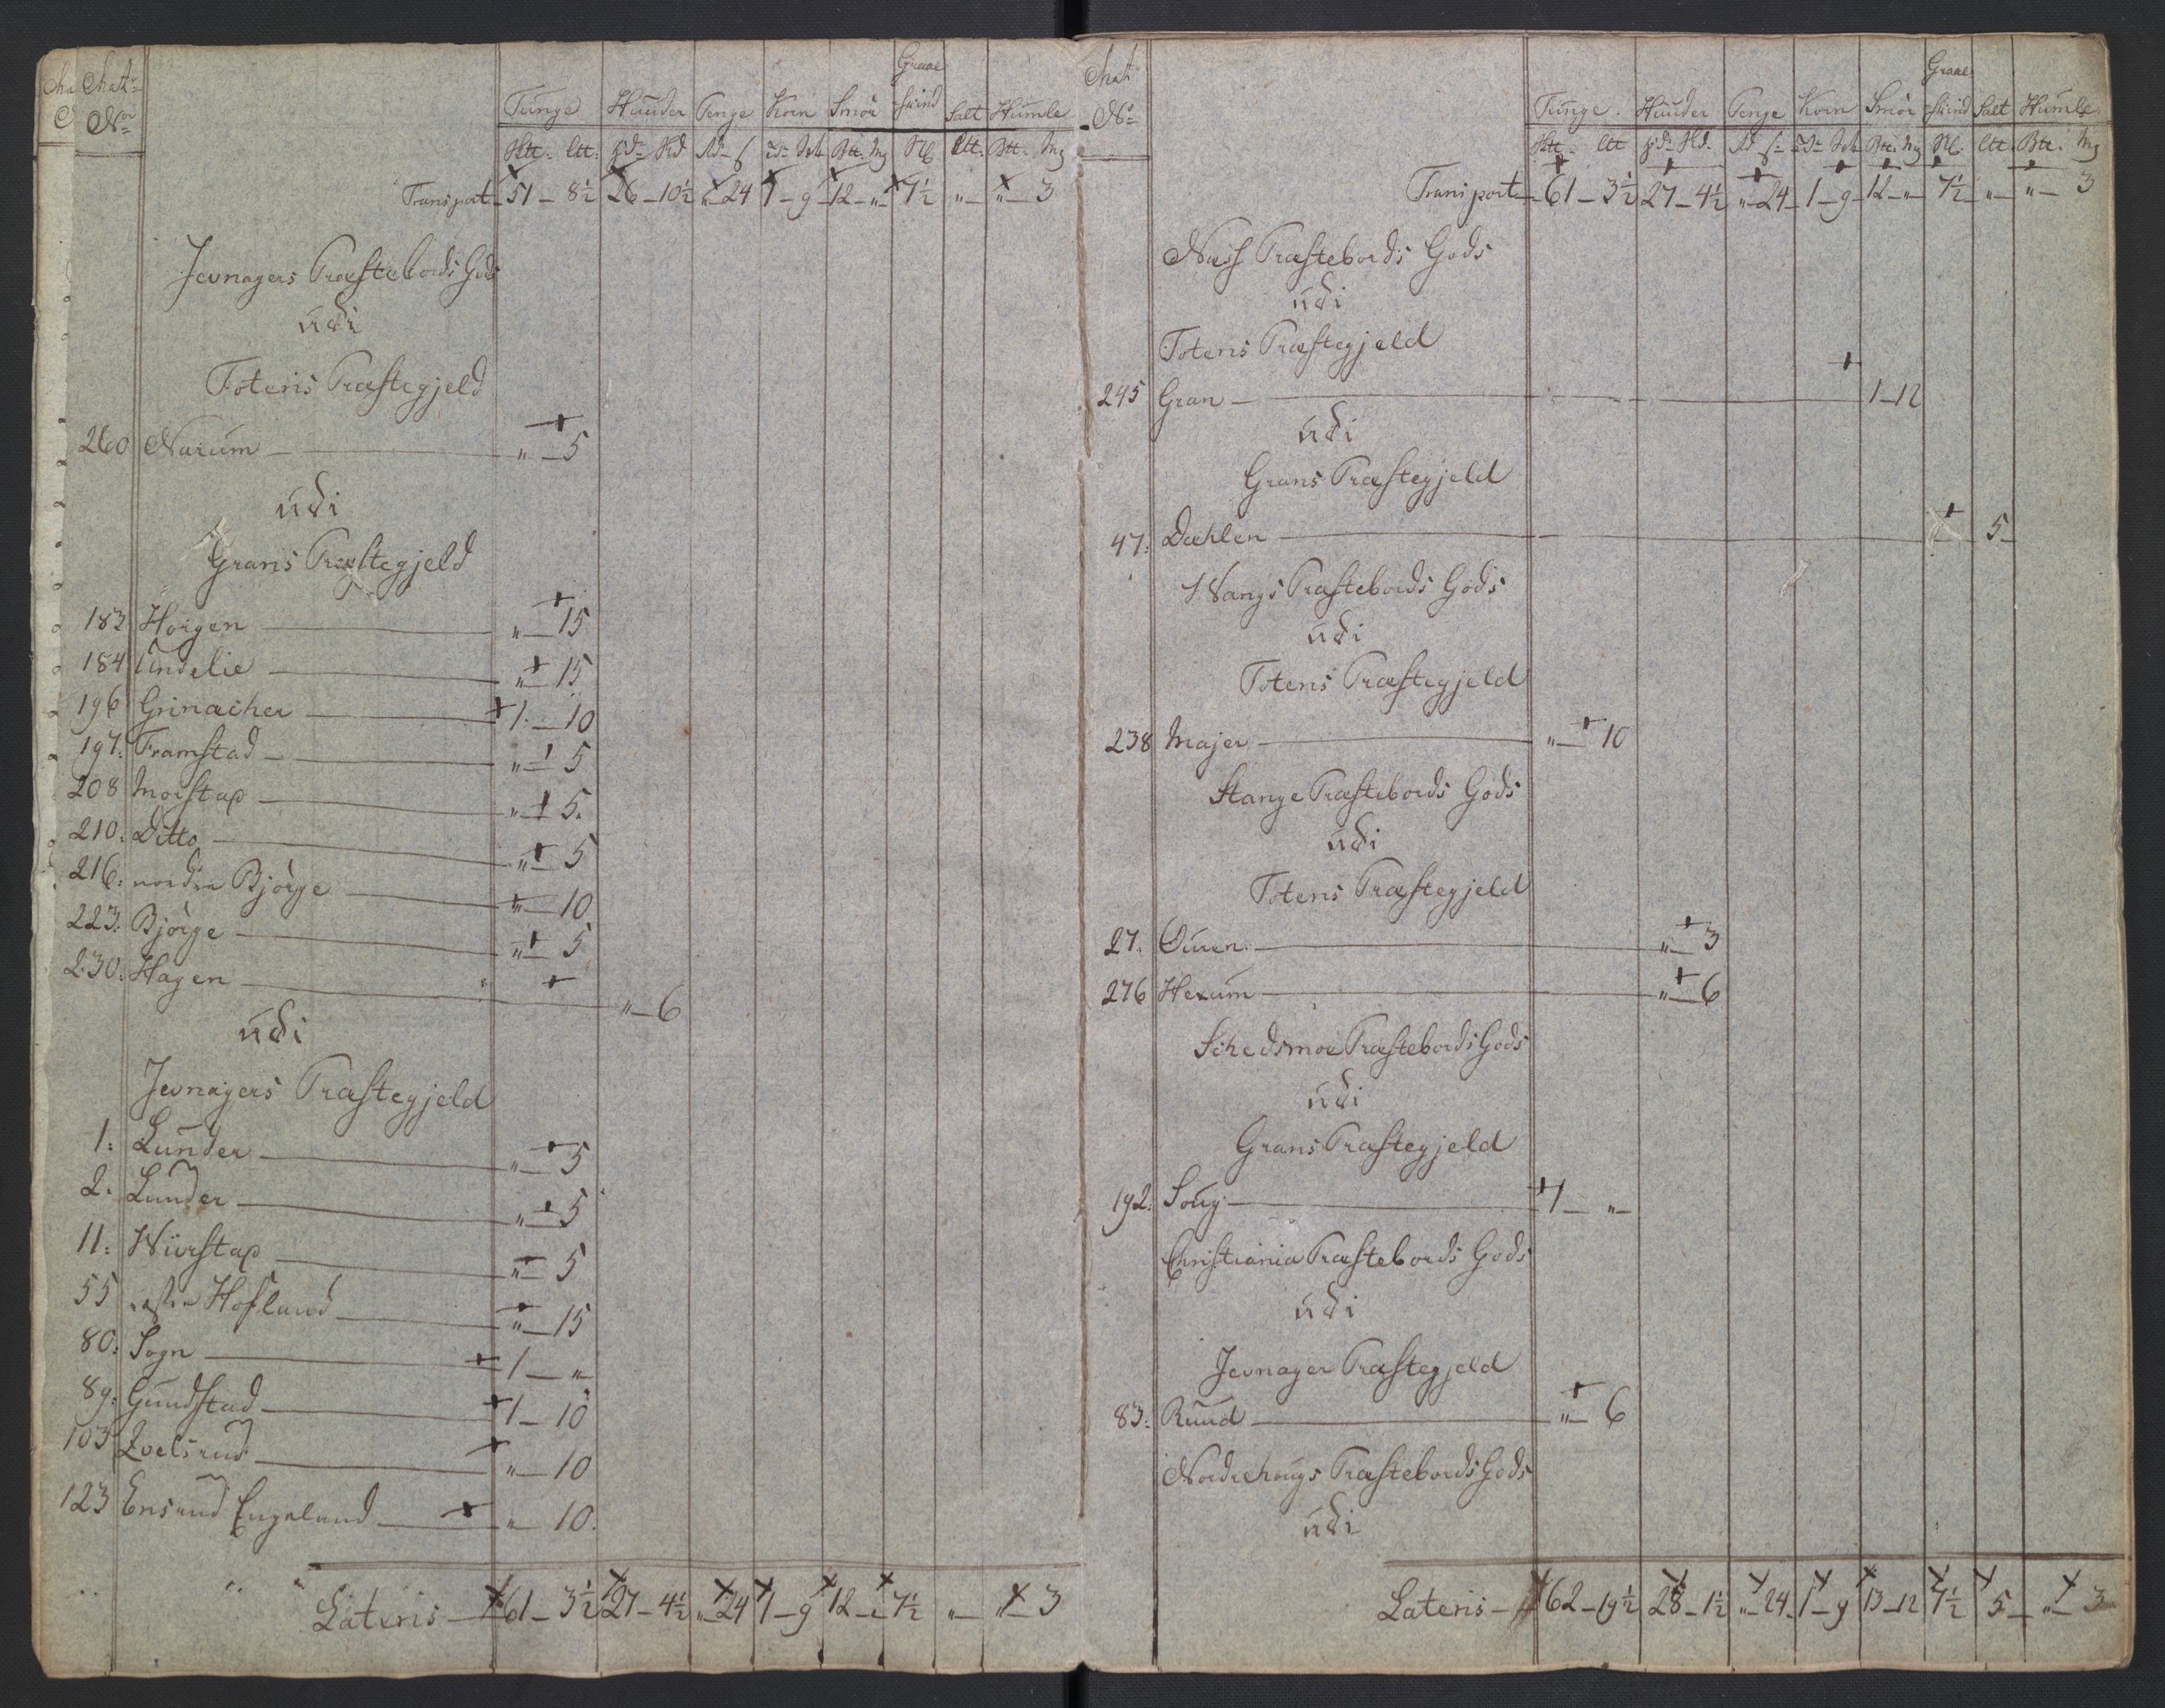 Mat:
No
Tunge Huuder Penge Korn Smör Graae Skind Salt Humle
Transport 51 - 8½ 26 - 10½ " - 24 1 - 9 12 - " 7½ " " - 3
Jevnagers Præstebords Gods
udi
Totens Præstegjeld
260 Narum " - 5
udi
Grans Præstegjeld
183 Horgen " - 15
184 Undelie " - 15
196 Grinacher 1 - 10
197. Framstad " - 5
208 Morstap " - 5.
210. Ditto " - 5
216: nordre Bjørge " - 10
223. Bjørge " - 5
230: Hagen " - 6
udi
Jevnagers Præstegjeld
1: Lunder " - 5
2. Lunder " - 5
11: Wirstap " - 5
55 Hofland " - 15
80: Sogn 1 - "
89: Guudstad 1 - 10
103 " - 10
123 Ensrud Engeland " 10.
Lateris 61 - 3½ 27 - 4½ " - 24 1 - 9 12 - " 7½ " " - 3
Mat:
No
Tunge. Huuder Penge Korn Smör Graae Skind Salt Humle
Transport 61 - 3½ 27 - 4½ " - 24 1 - 9 12 - " 7½ " " - 3
Næss Præstebords Gods
udi
Totens Præstegjeld
245 Gran 1 - 12
udi
Grans Præstegjeld
47: Dæhlen 5
Wangs Præstebords Gods
udi
Totens Præstegjeld
238 Majer " - 10
Stange Præstebords Gods
udi
Totens Præstegjeld
27. Øuren. " - 3
276 Hexum " - 6
Schedsmoe Præstebords Gods
udi
Grans Præstegjeld
192: Soug 1 - "
Christiania Præstebords Gods
udi
Jevnager Præstegjeld
83: Ruud " - 6
Nordrehougs Præstebords Gods
udi
Lateris 62 - 19½ 28 - 1½ " - 24 1 - 9 13 - 12 7½ 5 " - 3